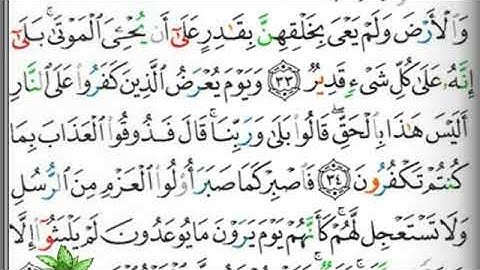 وَٱلْأَرْضَ وَلَمْ يَعْىَ بِخَلْقِهِنَّ بِقَٰدِرٍ عَلَىٰٓ أَن يُحْـِۧىَ ٱلْمَوْتَىٰ ۚ بَلَىٰٓ
إِنَّهُۥ عَلَىٰ كُلِّ شَىْءٍ قَدِيرٌ ٣٣ وَيَوْمَ يُعْرَضُ ٱلَّذِينَ كَفَرُوا۟ عَلَى ٱلنَّارِ
أَلَيْسَ هَٰذَا بِٱلْحَقِّ ۖ قَالُوا۟ بَلَىٰ وَرَبِّنَا ۚ قَالَ فَذُوقُوا۟ ٱلْعَذَابَ بِمَا
كُنتُمْ تَكْفُرُونَ ٣٤ فَٱصْبِرْ كَمَا صَبَرَ أُو۟لُوا۟ ٱلْعَزْمِ مِنَ ٱلرُّسُلِ
وَلَا تَسْتَعْجِل لَّهُمْ ۚ كَأَنَّهُمْ يَوْمَ يَرَوْنَ مَا يُوعَدُونَ لَمْ يَلْبَثُوٓا۟ إِلَّا